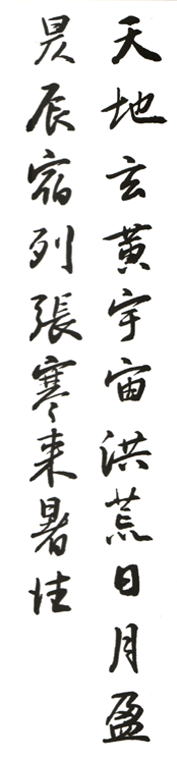 天地玄黃宇宙洪荒日月盈
昃辰宿列張寒来暑往